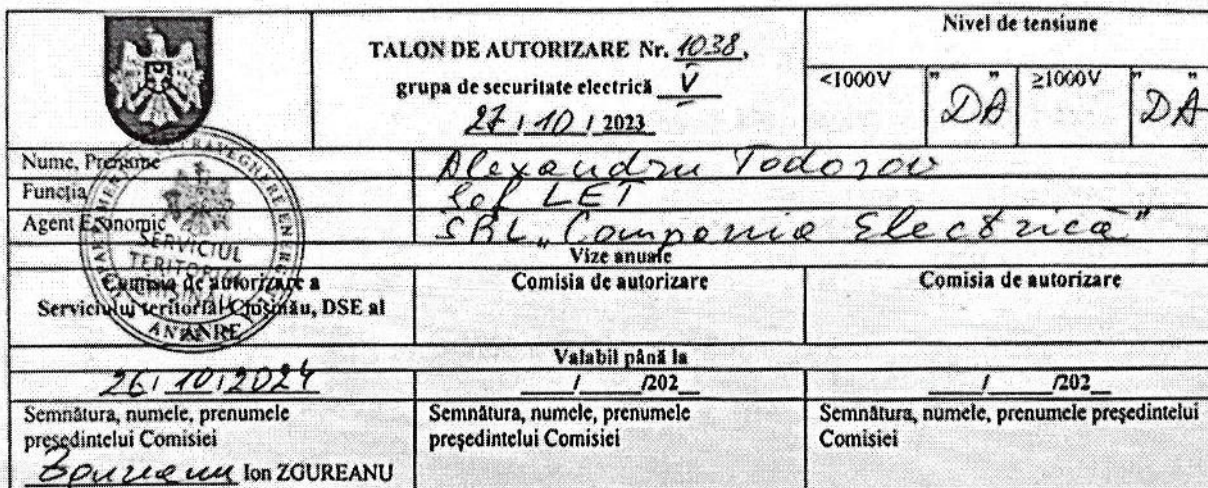 TALON DE AUTORIZARE Nr. 1038,
grupa de securitate electrică V
27 / 10 / 2023
Nivel de tensiune
<1000V " DA " ≥1000V " DA "
Nume, Prenume Alexandru Todorov
Funcția Șef LET
Agent Economic SRL „Compania Electrică”
Vize anuale
Comisia de autorizare a
Serviciului teritorial Chișinău, DSE al
ANRE
Comisia de autorizare
Comisia de autorizare
SERVICIUL
TERITORIAL
Valabil până la
26 / 10 / 2024
/ /202
/ /202
Semnătura, numele, prenumele
președintelui Comisiei
Ion ZGUREANU
Semnătura, numele, prenumele
președintelui Comisiei
Semnătura, numele, prenumele președintelui
Comisiei